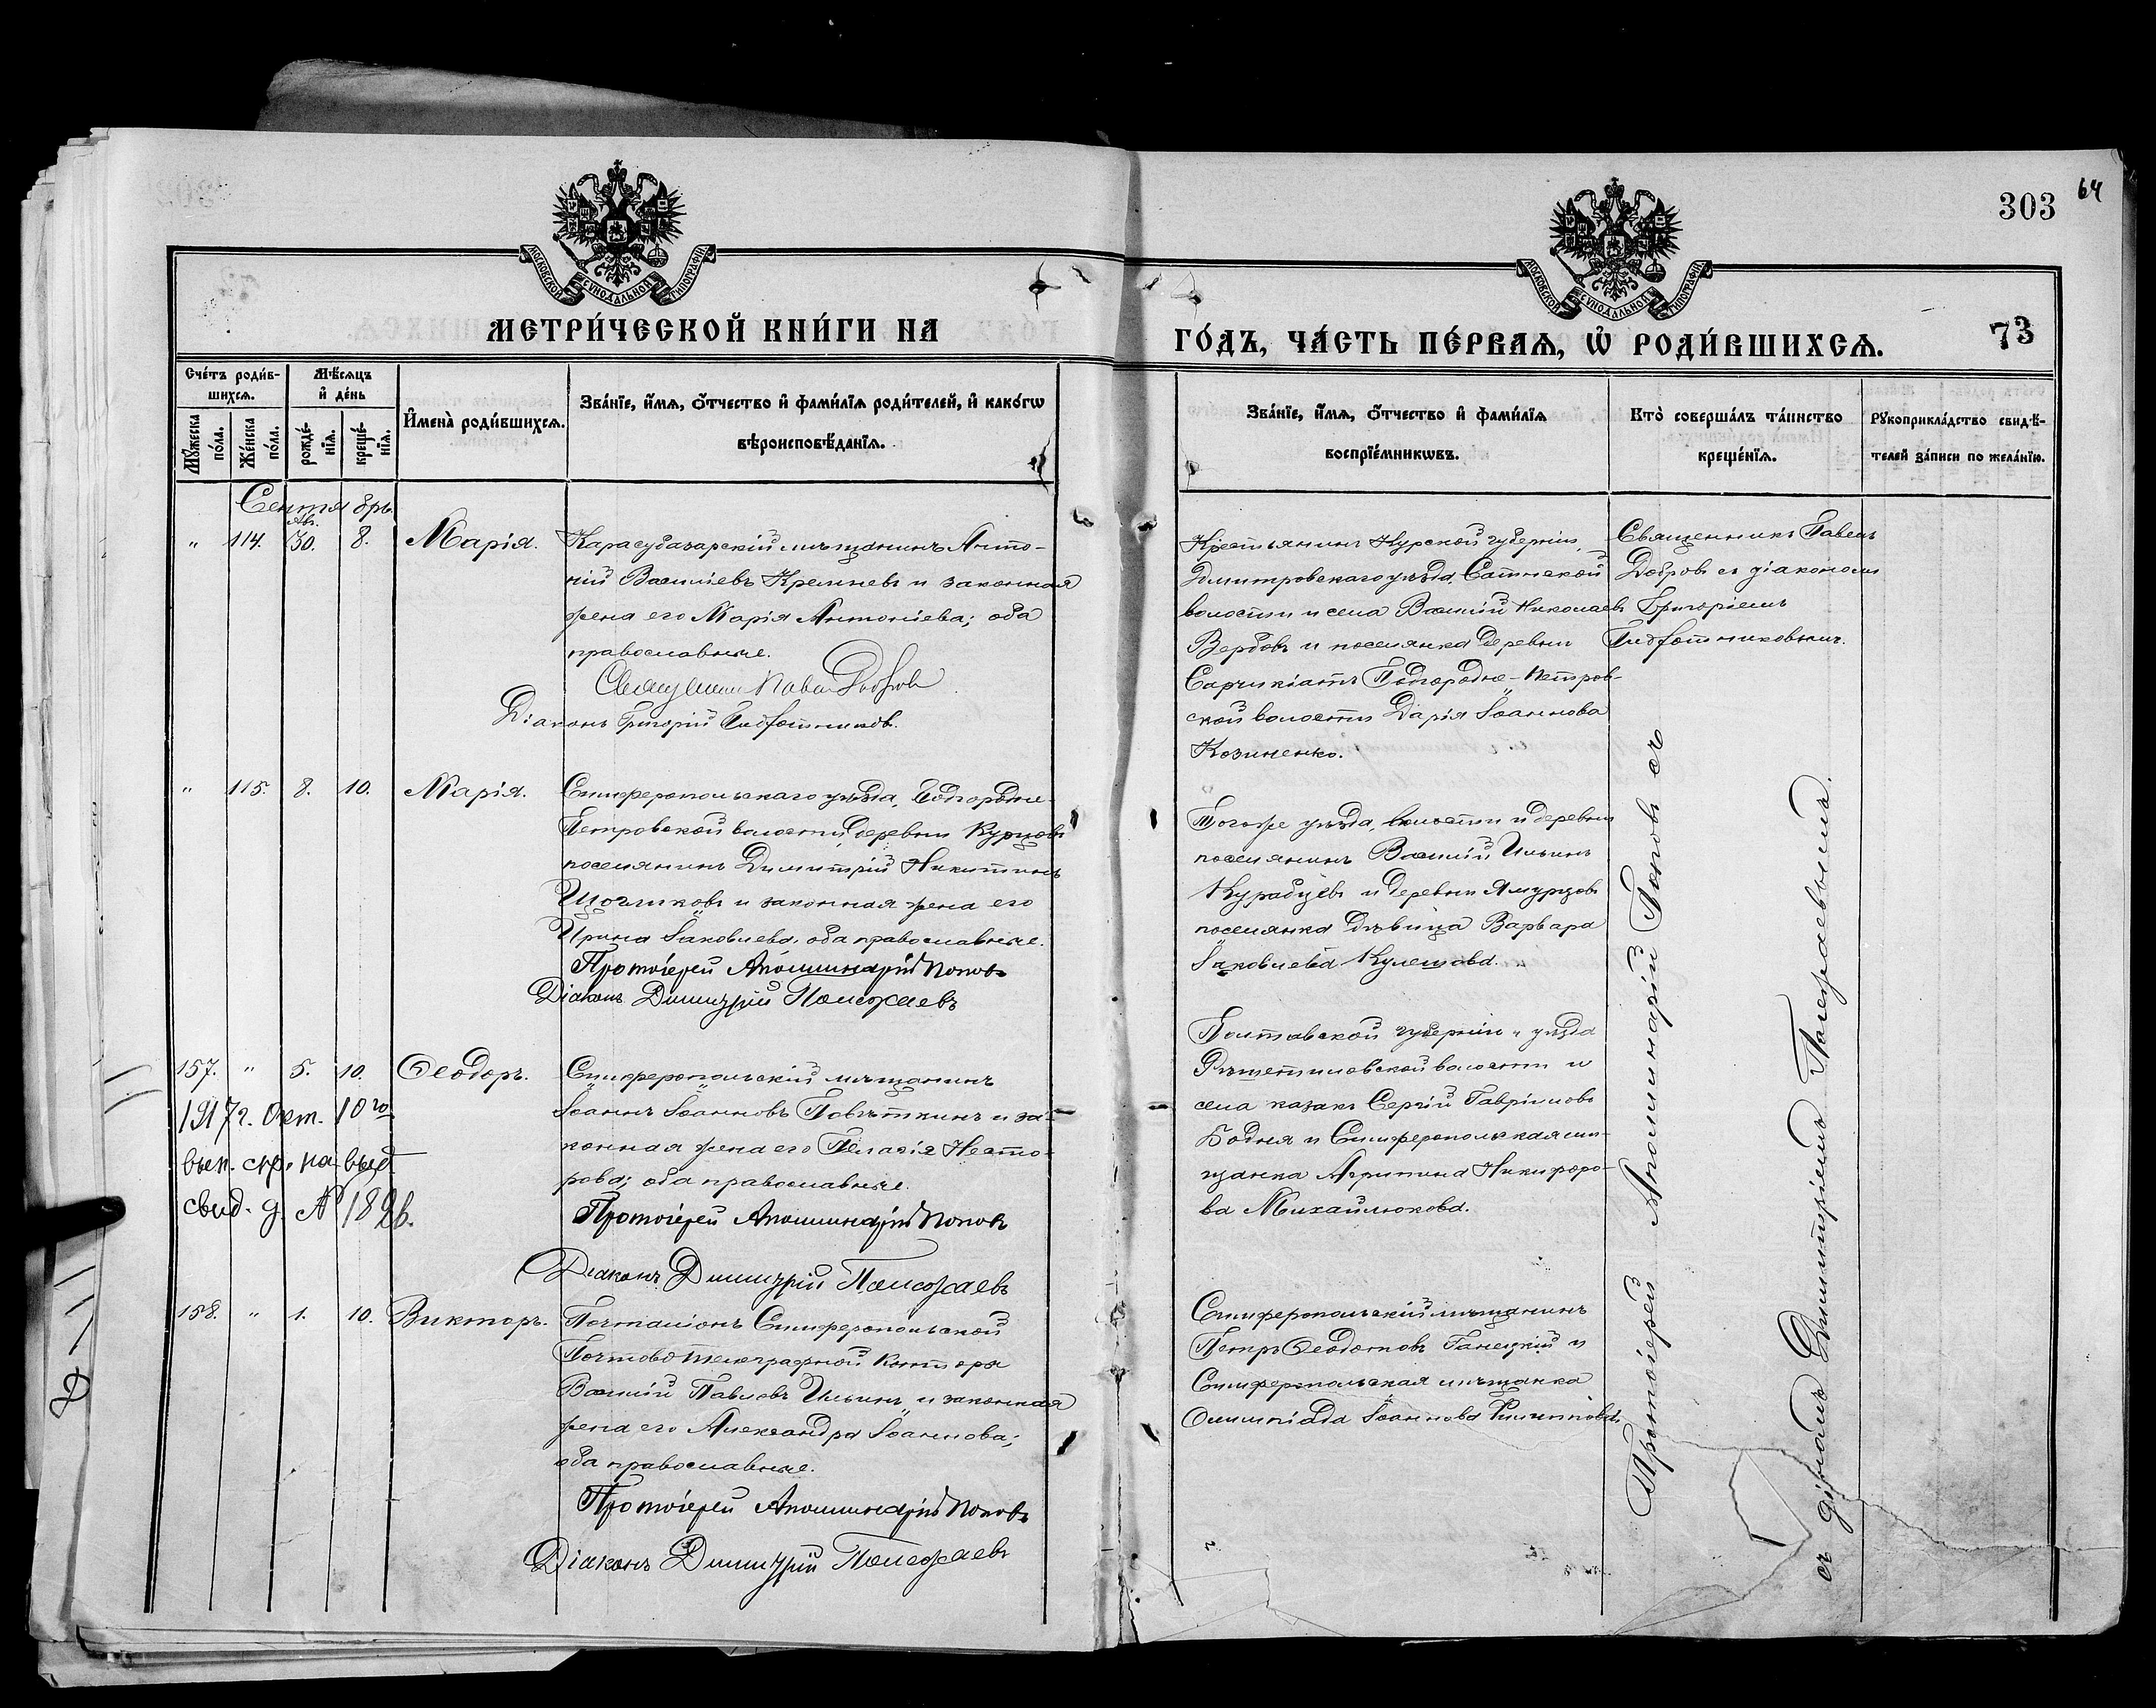 303
64
МОСКОВСКОЙ СѴНОДАЛЬНОЙ ТИПОГРАФІИ
МОСКОВСКОЙ СѴНОДАЛЬНОЙ ТИПОГРАФІИ
МЕТРИ́ЧЕСКОЙ КНИ́ГИ НА
ГО́ДЪ, ЧА́СТЬ ПЕ́РВАѦ, Ѡ҆ РОДИ́ВШИХСѦ.
73
Сче́тъ роди́в-
шихсѧ.
Мѣ́сѧцъ
и҆ де́нь
Мꙋ́жеска по́ла.
Же́нска по́ла.
рожде́-нїѧ.
креще́-нїѧ.
И҆мена̀ роди́вшихсѧ.
Зва́нїе, и҆́мѧ, ѻ҆́тчество и҆ фами́лїѧ роди́телей, и҆ како́гѡ
вѣроисповѣ́данїѧ.
Зва́нїе, и҆́мѧ, ѻ҆́тчество и҆ фами́лїѧ
воспрїе́мникѡвъ.
Кто̀ соверша́лъ та́инство
креще́нїѧ.
Рꙋкоприкла́дство свидѣ́-
телей за́писи по жела́нїю.
Сентябрь
Авг.
" 114. 30. 8. Марія.
Карасубазарскій мѣщанинъ Анто-
ній Василіевъ Кремневъ и законная
жена его Марія Антоніева; оба
православные.
Священникъ Павелъ Добровъ
Діаконъ Григорій
Крестьянинъ Курской губерніи,
Дмитровскаго уѣзда, волости и села Василій Николаевъ
Вербовъ и поселянка деревни
Подгородне-Петров-
ской волости Дарія Іоаннова
Козиненко.
Священникъ Павелъ
Добровъ съ діакономъ
Григоріемъ
" 115. 8. 10. Марія.
Симферопольскаго уѣзда, Подгородне-
Петровской волости, деревни Курцовъ
поселянинъ Димитрій Никитинъ
Щогликовъ и законная жена его
Ирина Іаковлева, оба православные.
Протоіерей Аполлинарій Поповъ
Діаконъ Димитрій Полежаевъ
Тогоже уѣзда, волости и деревни
поселянинъ Василій Ильинъ
Курабцевъ и деревни Ямурцовъ
поселянка дѣвица Варвара
Іаковлева Кулешова.
157. " 5. 10. Ѳеодоръ.
1917 г. Окт. 10го
вып. спр. на выд
свид. д. № 1826.
Симферопольскій мѣщанинъ
Іоаннъ Іоанновъ Повѣткинъ и за-
конная жена его Пелагія Несто-
рова; оба православные.
Протоіерей Аполлинарій Поповъ
Діаконъ Димитрій Полежаевъ
Полтавской губерніи и уѣзда
Рѣшетиловской волости и
села казакъ Сергій Гавріиловъ
Бодня и Симферопольская мѣ-
щанка Агрипина Никифоро-
ва Михайлюкова.
158. " 1. 10. Викторъ.
Почталіонъ Симферопольской
Почтово-телеграфной Конторы
Василій Павловъ Ильинъ и законная
жена его Александра Іоаннова;
оба православные.
Протоіерей Аполлинарій Поповъ
Діаконъ Димитрій Полежаевъ
Симферопольскій мѣщанинъ
Петръ Ѳеодотовъ Ганецкій и
Симферопольская мѣщанка
Олимпіада Іоаннова
Протоіерей Аполлинарій Поповъ съ
съ діакономъ Димитріемъ Полежаевымъ.